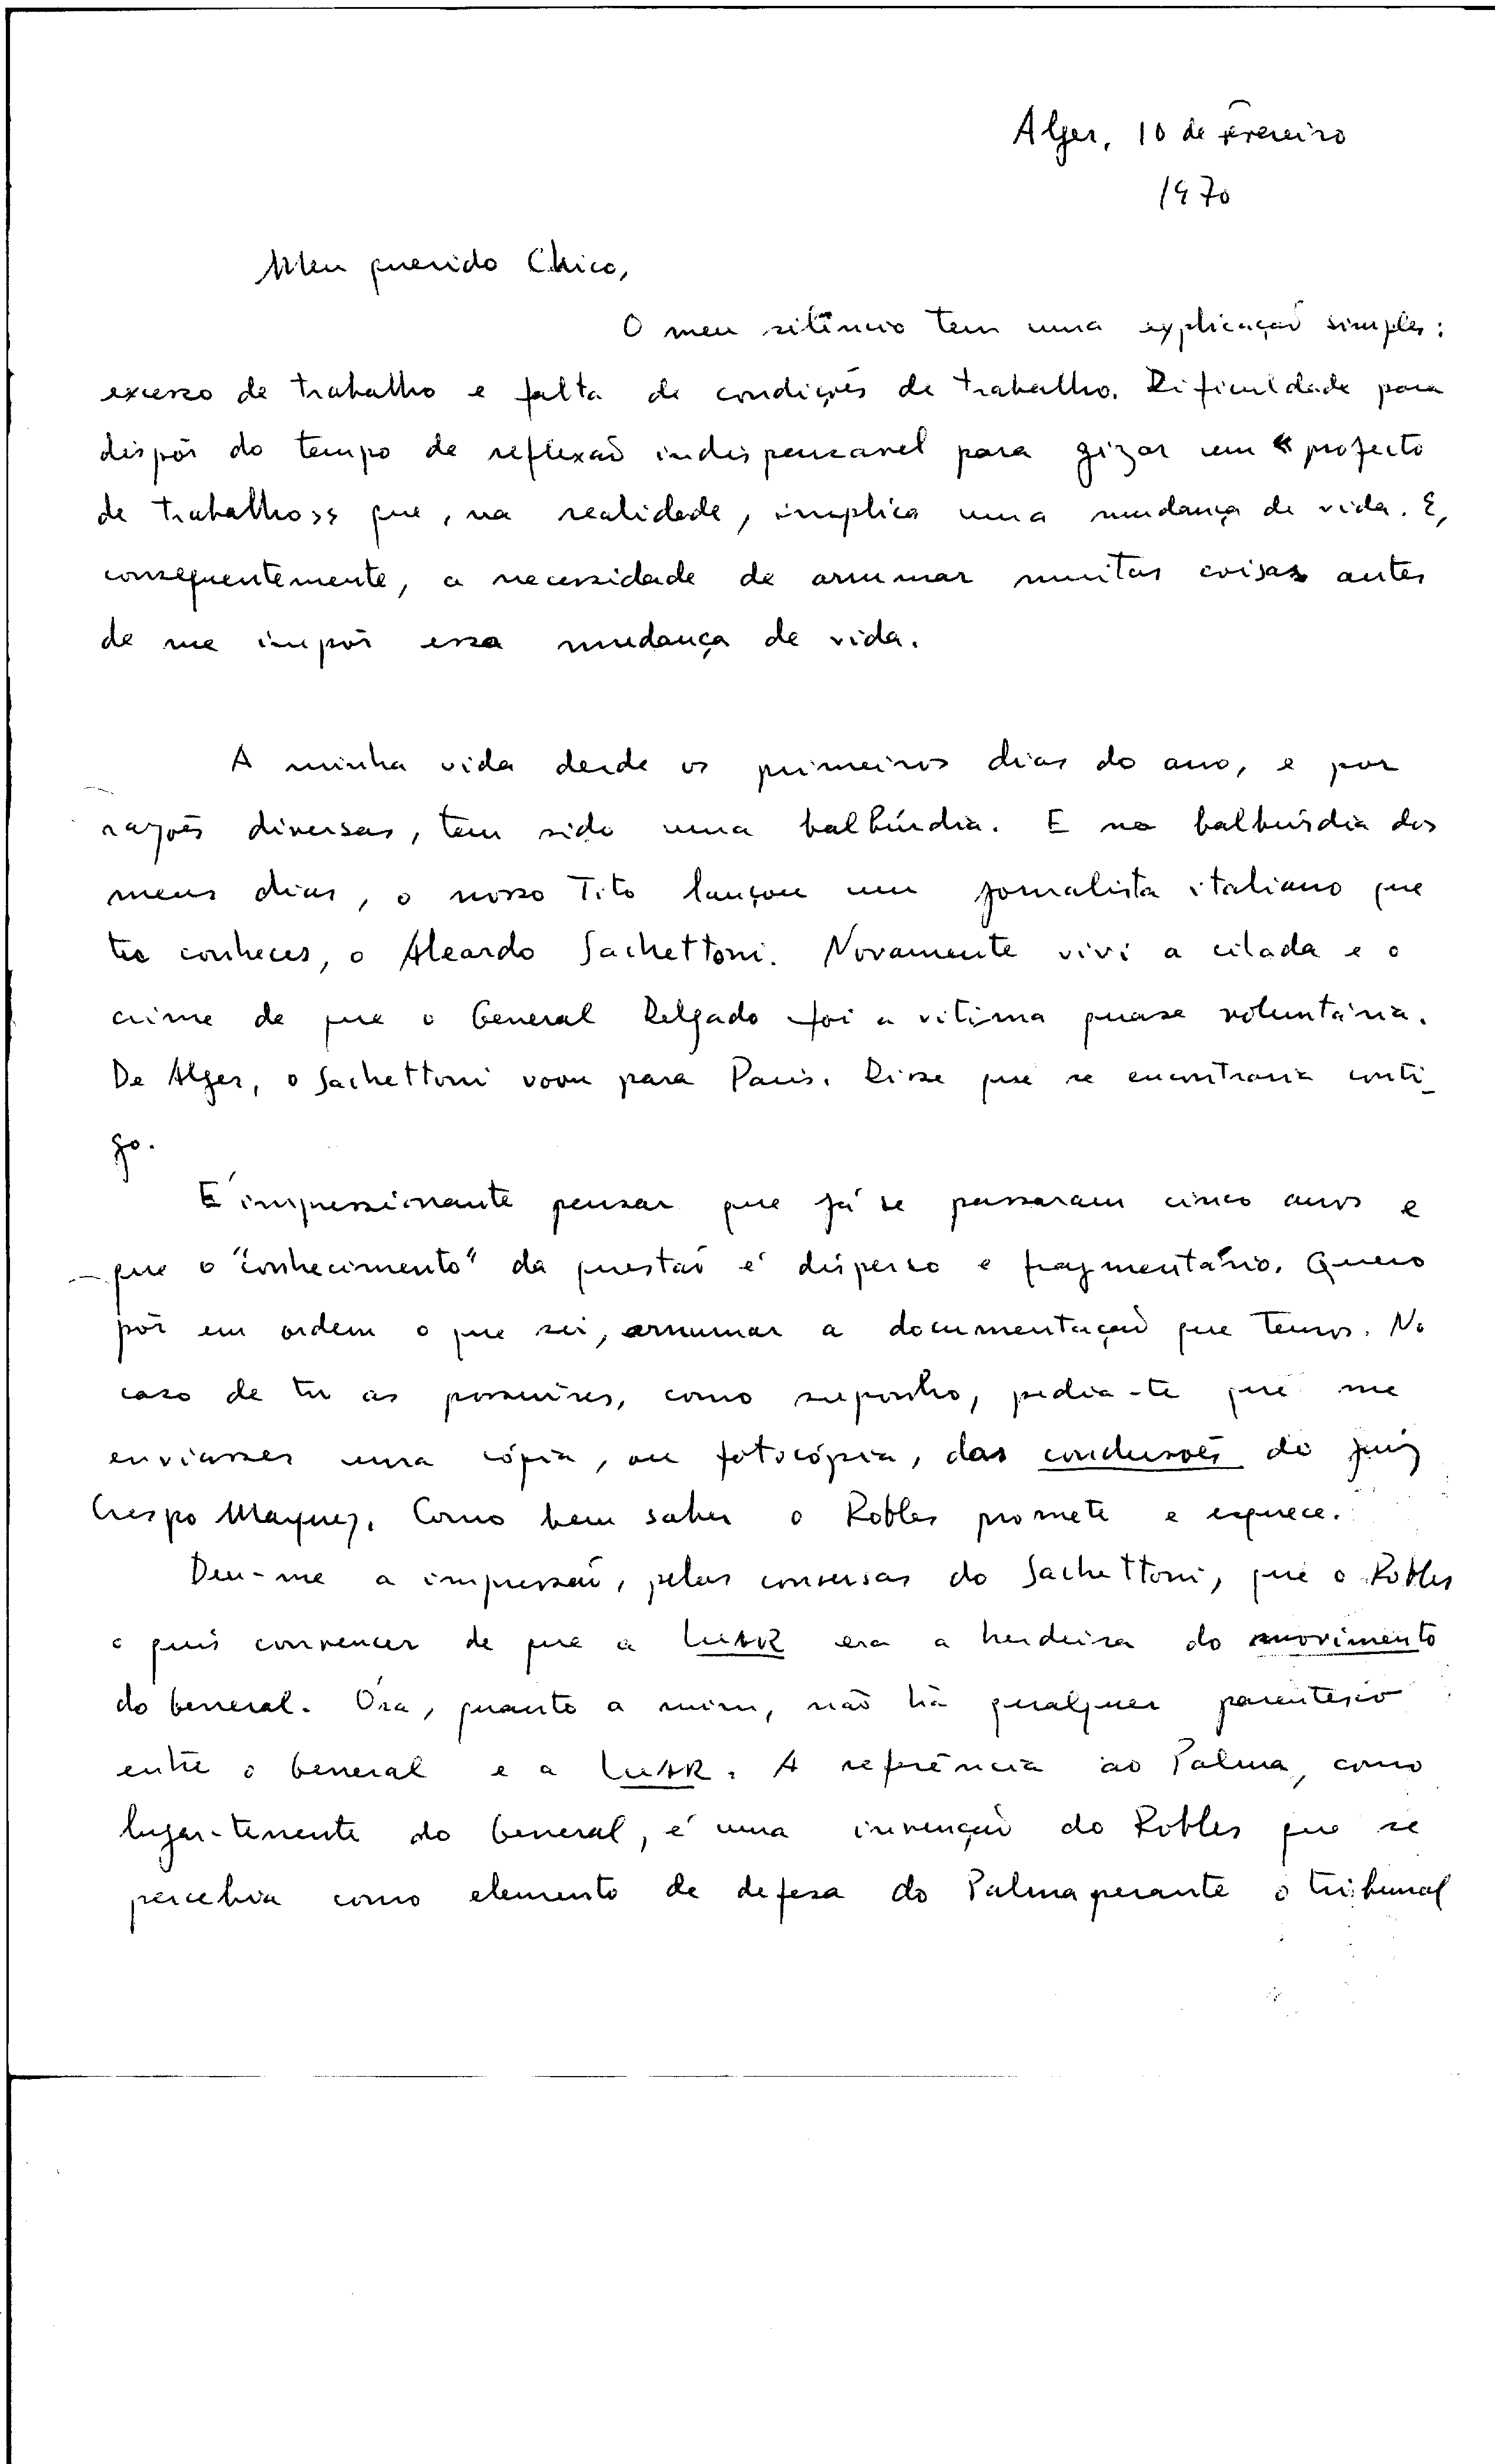 Alger, 10 de Fevereiro
1970
Meu querido Chico,
O meu silêncio tem uma explicação simples:
excesso de trabalho e falta de condições de trabalho. Dificuldade para
dispôr do tempo de reflexão indispensavel para gizar um «projecto
de trabalho» que, na realidade, implica uma mudança de vida. E,
consequentemente, a necessidade de arrumar muitas coisas antes
de me impôr essa mudança de vida.
A minha vida desde os primeiros dias do ano, e por
razões diversas, tem sido uma balbúrdia. E na balbúrdia dos
meus dias, o nosso Tito lançou um jornalista italiano que
tu conheces, o Aleardo Sachettoni. Novamente vivi a cilada e o
crime de que o General Delgado foi a vitima quase voluntária.
De Alger, o Sachettoni voou para Paris. Disse que se encontraria conti_
go.
É impressionante pensar que já se passaram cinco anos e
que o "conhecimento" da questão é disperso e fragmentário. Quero
pôr em ordem o que sei, arrumar a documentação que temos. No
caso de tu as possuires, como suponho, pedia-te que me
enviasses uma cópia, ou fotocópia, das conclusões do juiz
Crespo Marquez. Como bem sabes o Robles promete e esquece.
Deu-me a impressão, pelas conversas do Sachettoni, que o Robles
o quis convencer de que a LUAR era a herdeira do movimento
do General. Ora, quanto a mim, não há qualquer parentesco
entre o General e a LUAR. A referência ao Palma, como
lugar-tenente do General, é uma invenção do Robles que se
percebia como elemento de defesa do Palma perante o tribunal